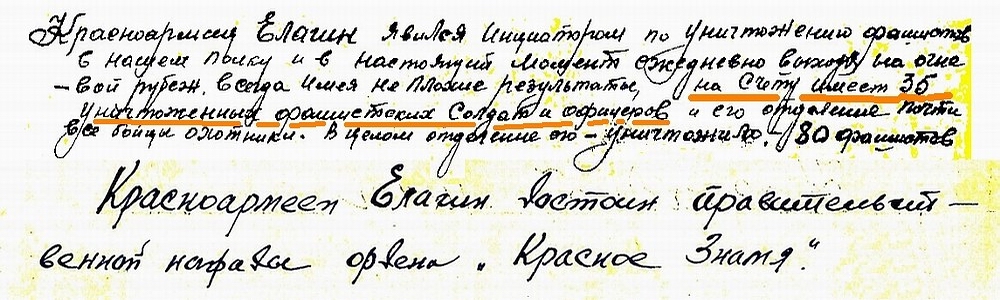 Красноармеец Елагин явился инициатором по уничтожению фашистов
в нашем полку и в настоящий момент ежедневно выходя на огне
-вой рубеж, всегда имея не плохие результаты, на счету имеет 35
уничтоженных фашистских солдат и офицеров и его отделение почти
все бойцы охотники. В целом отделение его - уничтожило. 80 фашистов
Красноармеец Елагин достоин правительст-
венной награды ордена „Красное Знамя".